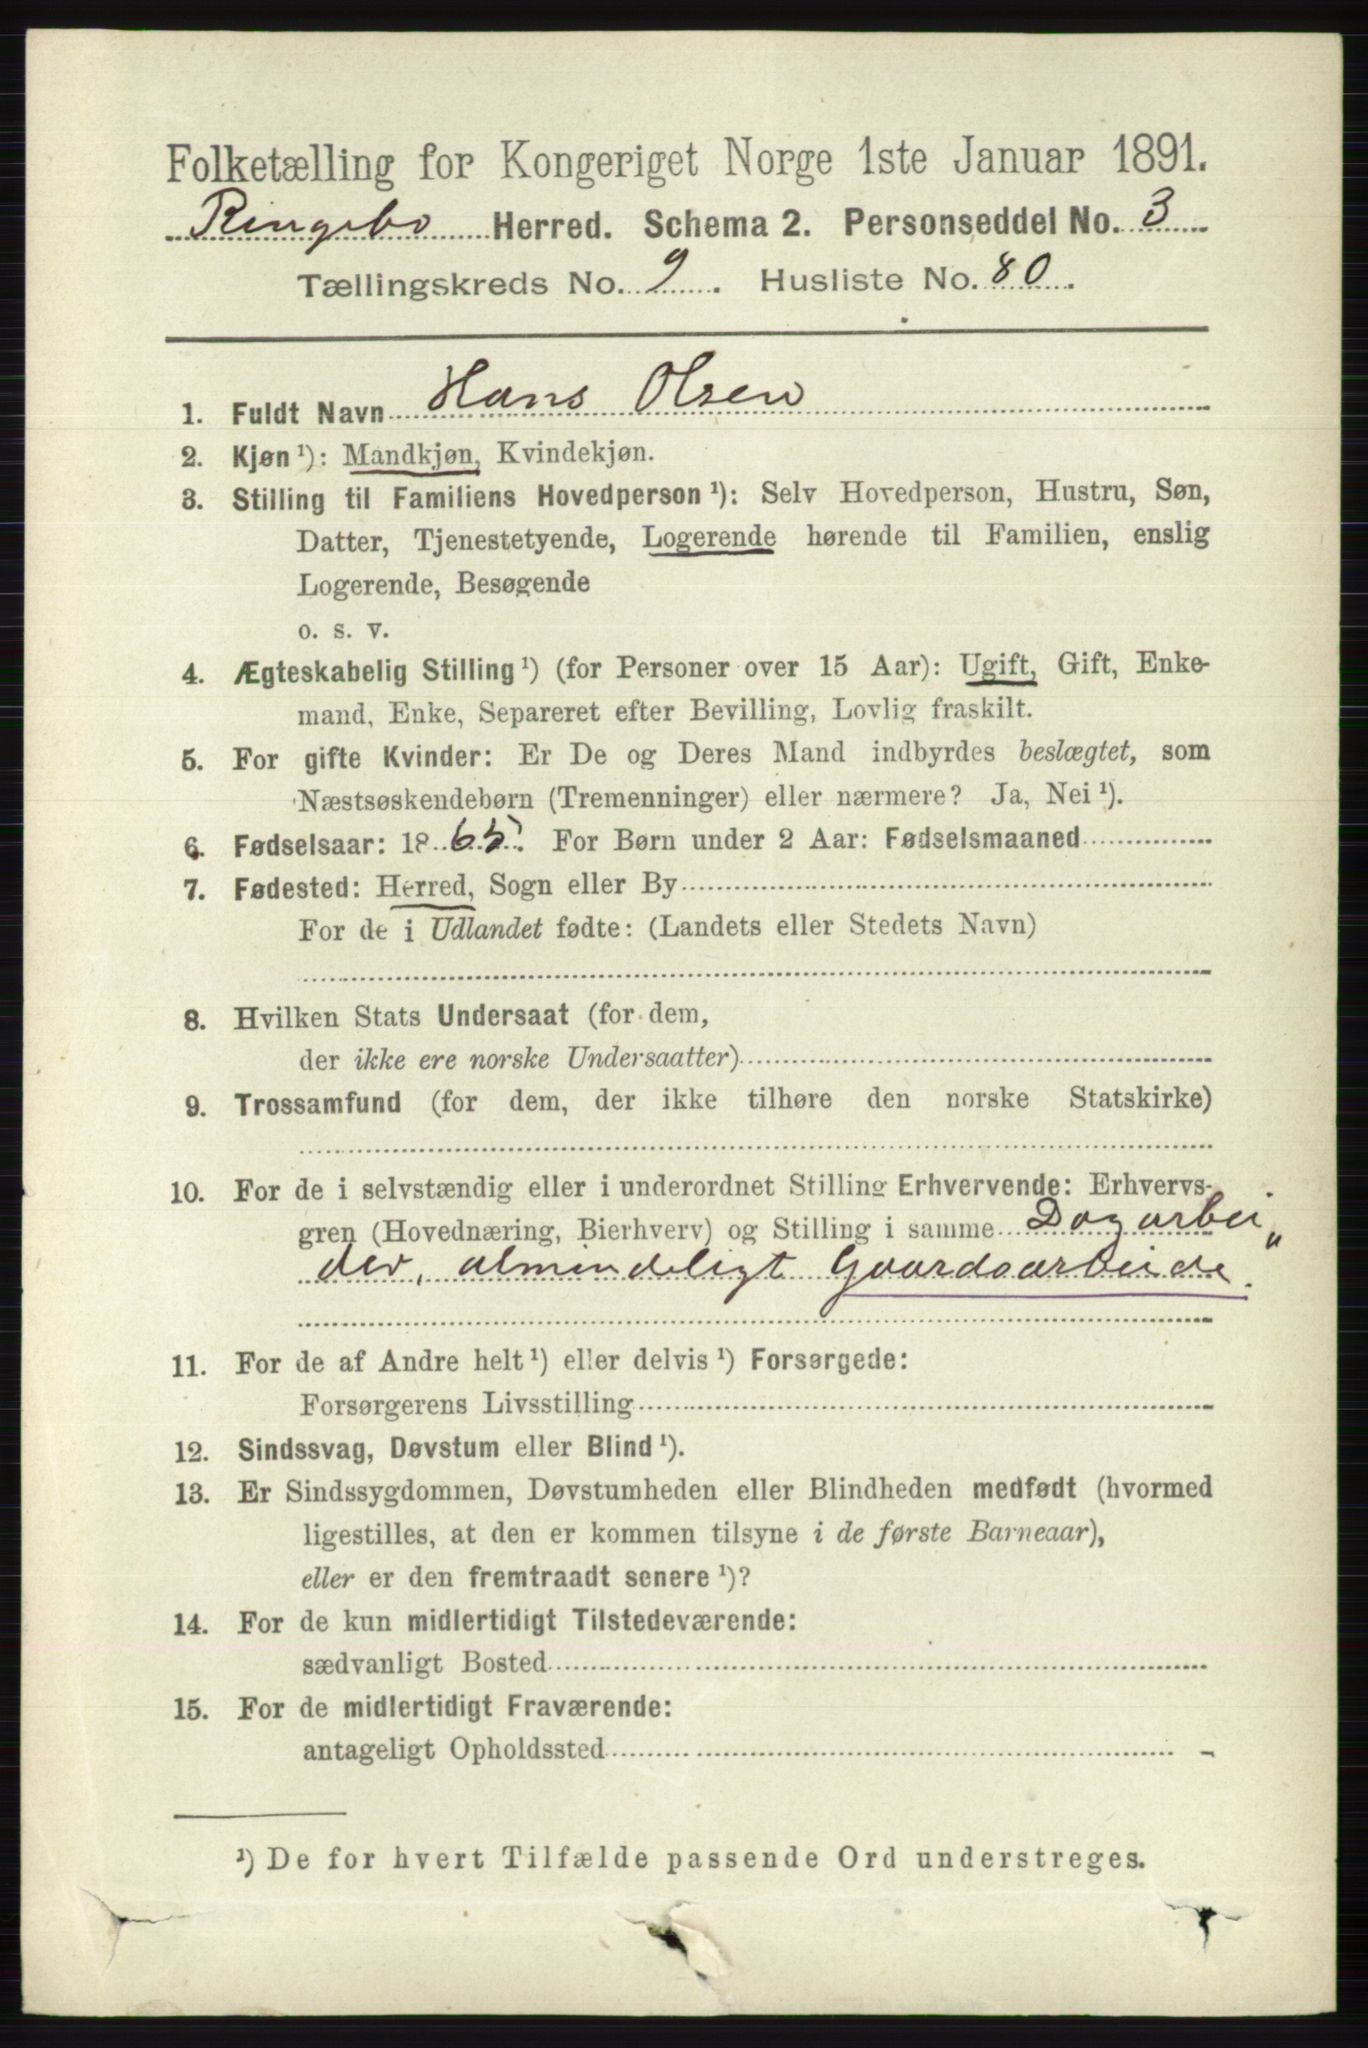 Folketælling for Kongeriget Norge 1ste Januar 1891.
Ringebo Herred. Schema 2. Personseddel No. 3
Tællingskreds No. 9. Husliste No. 80.
1. Fuldt Navn Hans Olsen
2. Kjøn ¹): Mandkjøn, Kvindekjøn.
3. Stilling til Familiens Hovedperson ¹): Selv Hovedperson, Hustru, Søn,
Datter, Tjenestetyende, Logerende hørende til Familien, enslig
Logerende, Besøgende
o. s. v.
4. Ægteskabelig Stilling ¹) (for Personer over 15 Aar): Ugift, Gift, Enke-
mand, Enke, Separeret efter Bevilling, Lovlig fraskilt.
5. For gifte Kvinder: Er De og Deres Mand indbyrdes beslægtet, som
Næstsøskendebørn (Tremenninger) eller nærmere? Ja, Nei ¹).
6. Fødselsaar: 1865. For Børn under 2 Aar: Fødselsmaaned
7. Fødested: Herred, Sogn eller By
For de i Udlandet fødte: (Landets eller Stedets Navn)
8. Hvilken Stats Undersaat (for dem,
der ikke ere norske Undersaatter)
9. Trossamfund (for dem, der ikke tilhøre den norske Statskirke)
10. For de i selvstændig eller i underordnet Stilling Erhvervende: Erhvervs-
gren (Hovednæring, Bierhverv) og Stilling i samme Dagarbei„
der, almindeligt Gaardsarbeide.
11. For de af Andre helt ¹) eller delvis ¹) Forsørgede:
Forsørgerens Livsstilling
12. Sindssvag, Døvstum eller Blind ¹).
13. Er Sindssygdommen, Døvstumheden eller Blindheden medfødt (hvormed
ligestilles, at den er kommen tilsyne i de første Barneaar),
eller er den fremtraadt senere ¹)?
14. For de kun midlertidigt Tilstedeværende:
sædvanligt Bosted
15. For de midlertidigt Fraværende:
antageligt Opholdssted
¹) De for hvert Tilfælde passende Ord understreges.